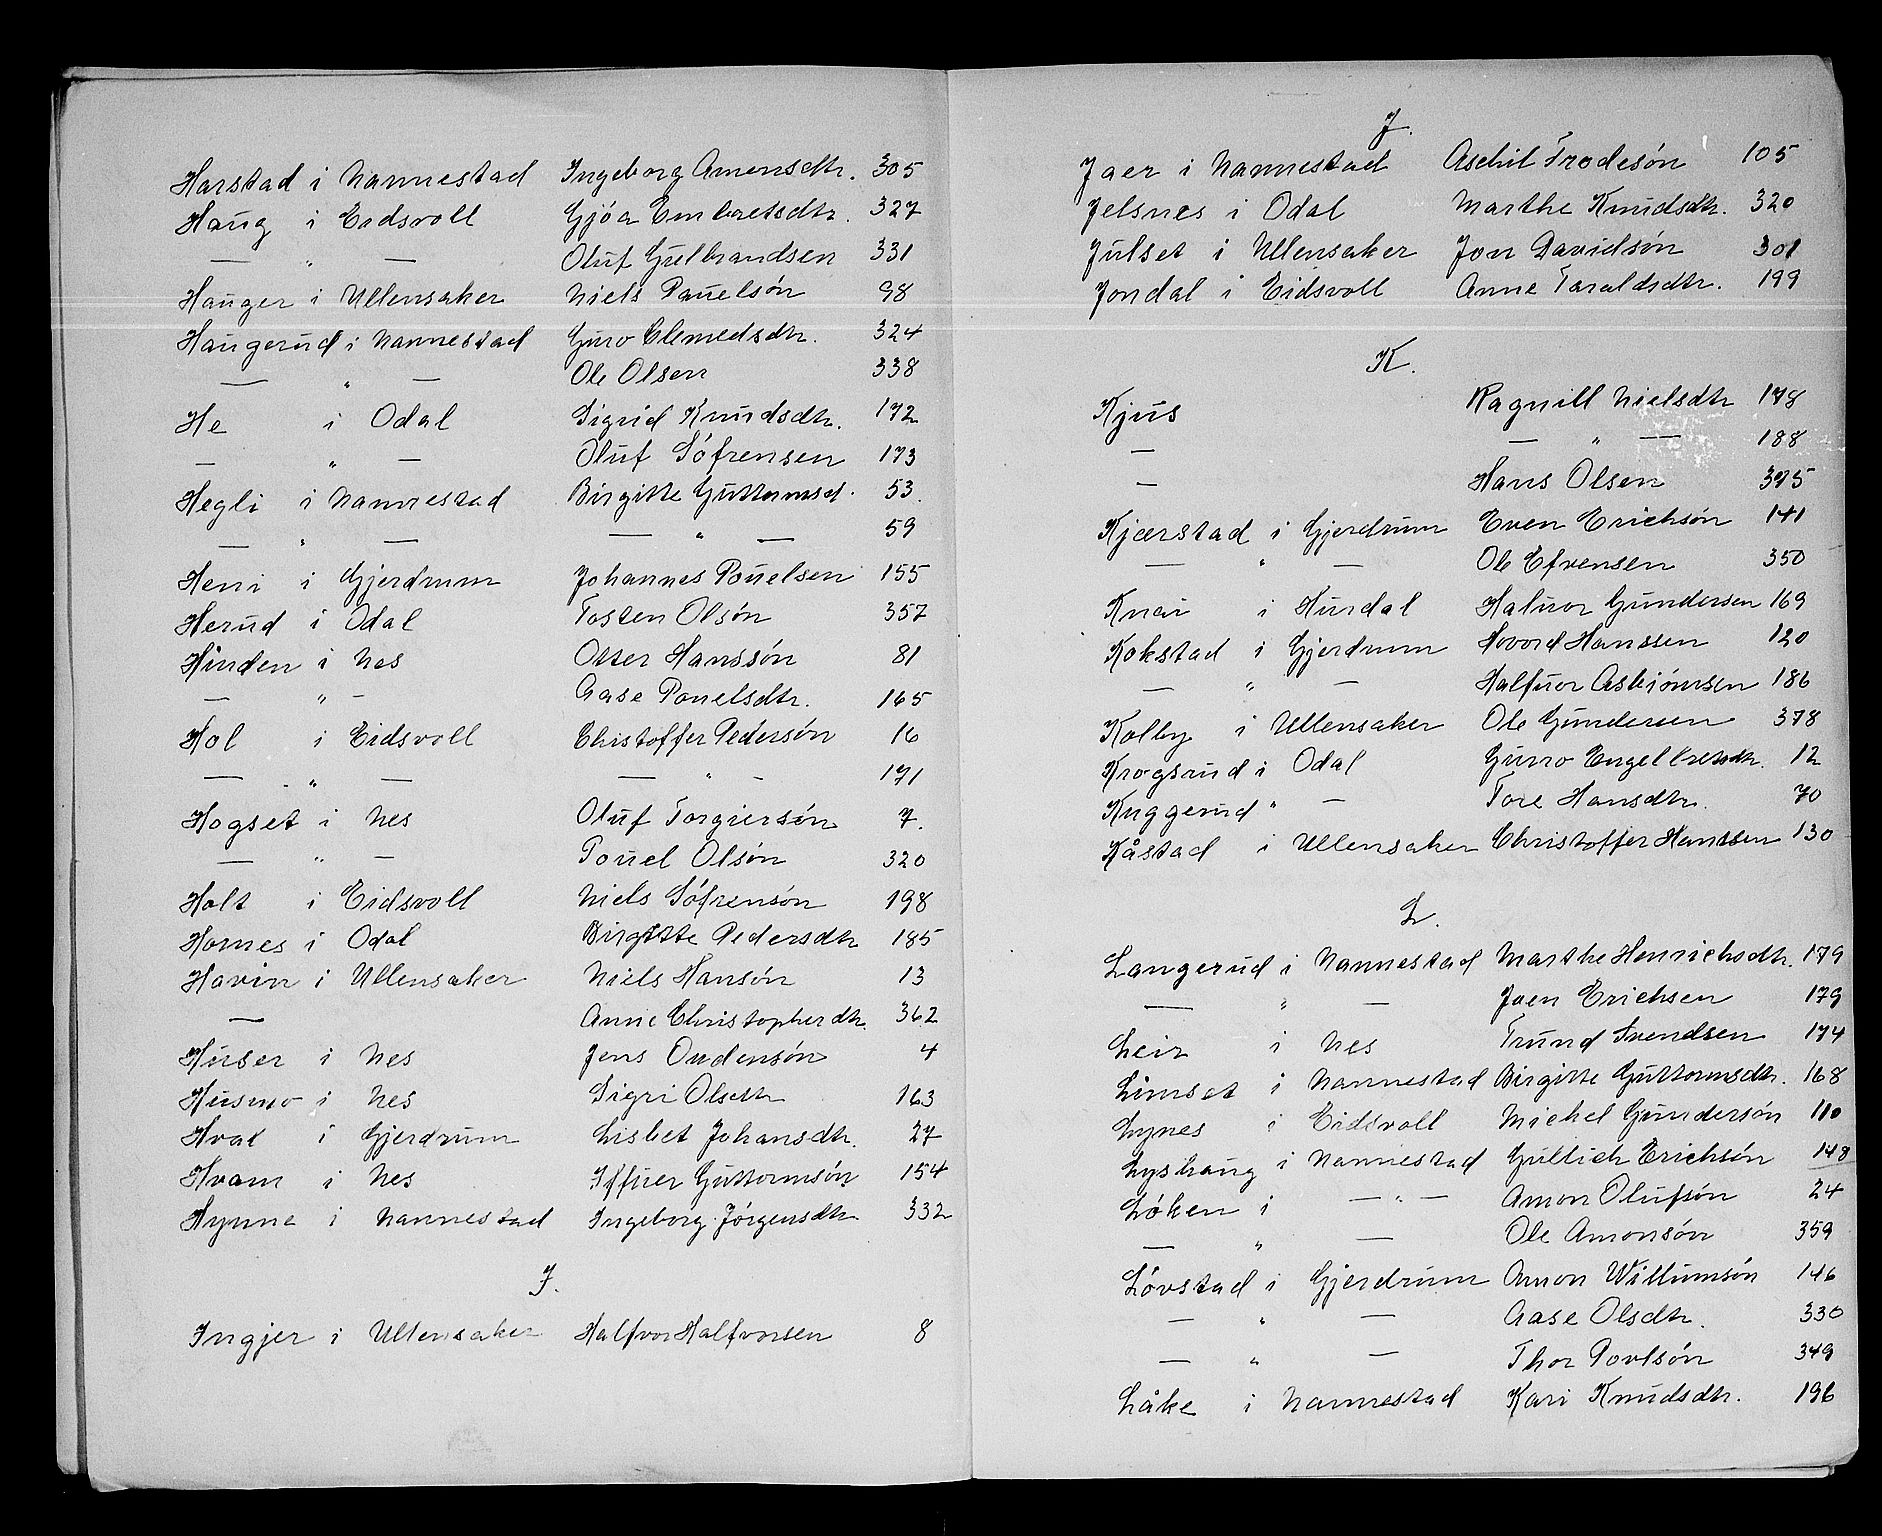 Harstad i Nannestad Ingeborg Amensdtr. 305
Haug i Eidsvoll Gjóa Embretsdtr. 327
— " — Oluf Gulbrandsen 331
Hauger i Ullensaker Niels Pauelsón 98
Haugerud i Nannestad Guro Clemedsdtr. 324
— " — Ole Olsen 338
He i Odal Sigrid Knudsdtr. 172
— " — Oluf Sófrensen 173
Hegli i Nannestad Birgitte Guttormsd. 53.
— " — — " — 59
Heni i Gjerdrum Johannes Pouelsen 155
Herud i Odal Tosten Olsón 357
Hinden i Nes Otter Hanssón 81
— " — Aase Pouelsdtr. 165
Hol i Eidsvoll Christoffer Pedersón 16
— " — — " — 171
Hogset i Nes Oluf Torgiersón 7.
— " — Pouel Olsón 320
Holt i Eidsvoll Niels Sófrensón 198
Hornes i Odal Birgitte Pedersdtr 185
Hovin i Ullensaker Niels Hansón 13
— Anne Christopherdtr. 362
Huser i Nes Jens Oudensón 4
Husmo i Nes Sigri Olsdtr 163
Hval i Gjerdrum Lisbet Johansdtr. 27
Hvam i Nes Iffuer Guttormsón 154
Hynne i Nannestad Ingeborg Jórgensdtr 332
I.
Ingjer i Ullensaker Halfvor Halfvorsen 8
J.
Jaer i Nannestad Aschil Frodesón 105
Jelsnes i Odal Marthe Knudsdtr. 320
Julset i Ullensaker Jon Davidsón 301
Jondal i Eidsvoll Anne Taraldsdtr. 199
K.
Kjus Ragnill Nielsdtr 178
— — " — 188
— Hans Olsen 375
Kjærstad i Gjerdrum Even Erichsón 141
— " — Ole Efvensen 350
Knai i Hurdal Haluor Gundersen 169
Kokstad i Gjerdrum Hovord Hanssen 120
— " — Halfuor Asbiórnsen 186
Kolby i Ullensaker Ole Gundersen 378
Krogsrud i Odal Gurro Engelbretsdtr. 12
Kuggerud " — Tore Hansdtr. 70
Kåstad i Ullensaker Christoffer Hanssen 130
L.
Langerud i Nannestad Marthe Henrichsdtr. 179
— " — Joen Erichsen 179
Leir i Nes Trund Svendsen 174
Limset i Nannestad Birgitte Guttormsdtr. 168
Lynes i Eidsvoll Michel Gundersón 110
Lyshaug i Nannestad Gullich Erichsón 148
Lóken i — " — Amon Olufsón 24
— " — Ole Amonsón 359
Lóvstad i Gjerdrum Amon Willumsón 146
— " — Aase Olsdtr. 330
— " — Thor Povlsón 349
Låke i Nannestad Kari Knudsdtr. 196